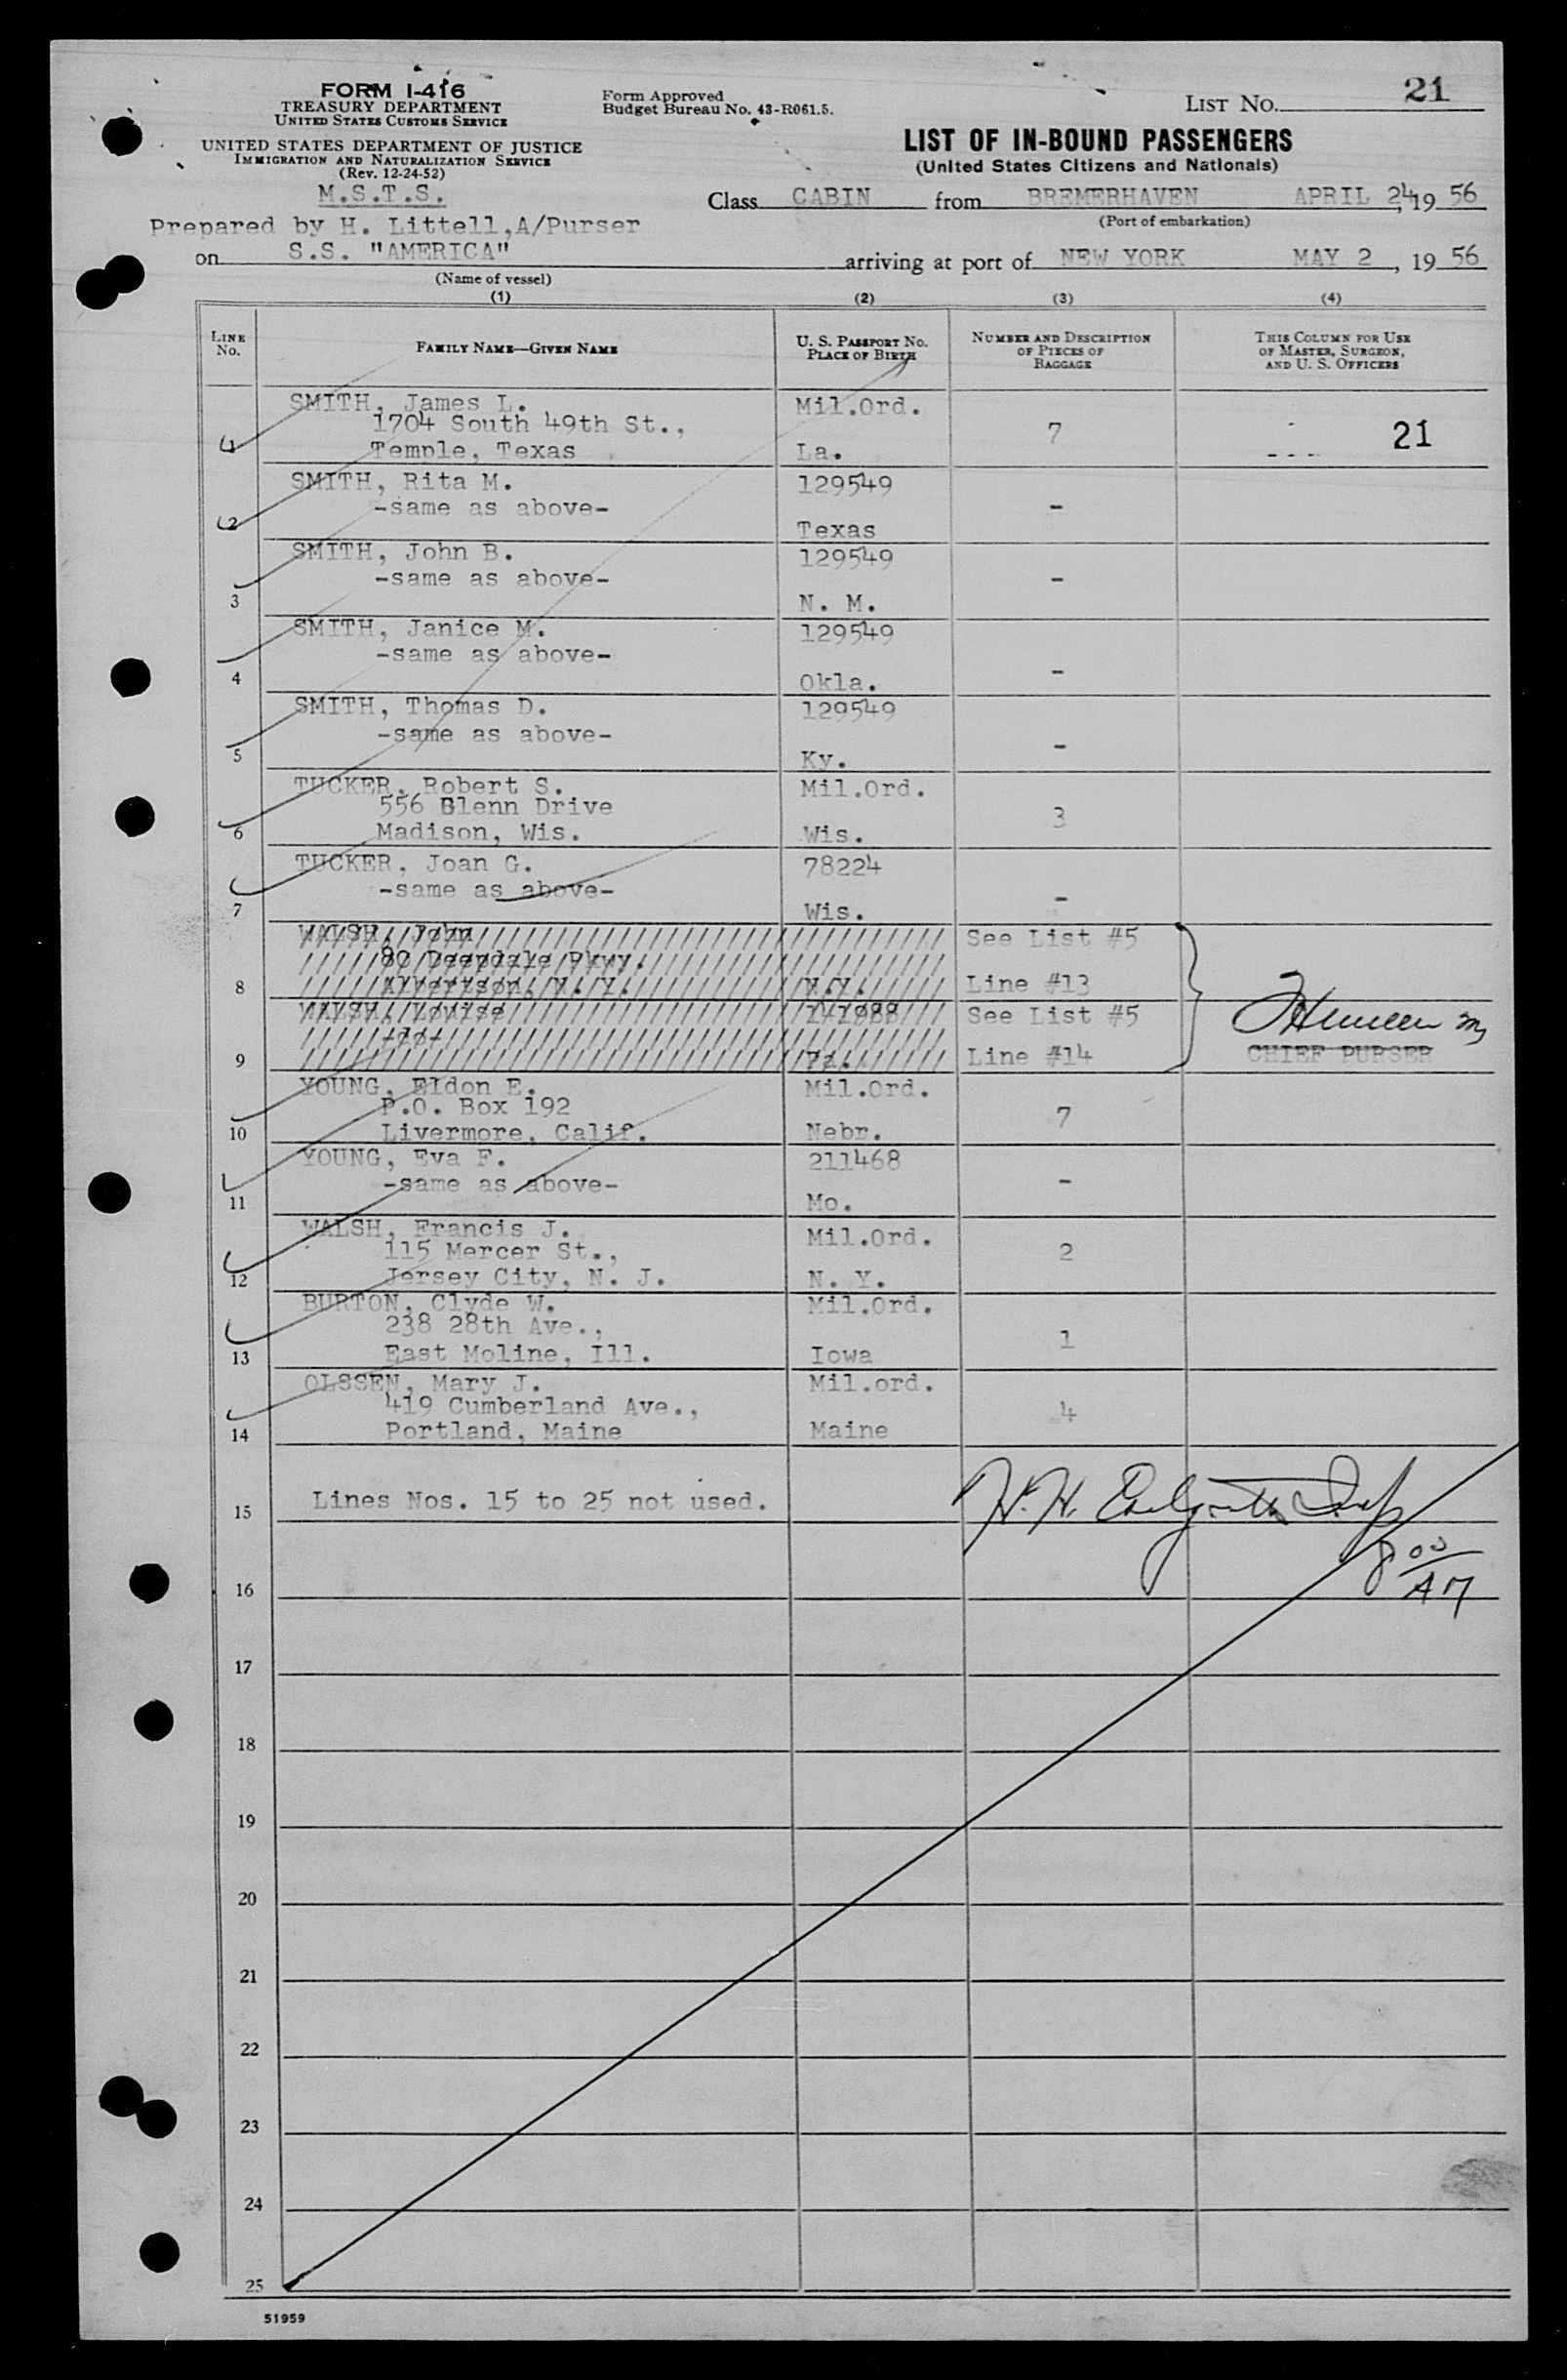 FORM I-416
TREASURY DEPARTMENT
UNITED STATES CUSTOMS SERVICE
UNITED STATES DEPARTMENT OF JUSTICE
IMMIGRATION AND NATURALIZATION SERVICE
(Rev. 12-24-52)
M.S.T.S.
Prepared by H. Littell,A/Purser
Form Approved
Budget Bureau No. 43-R061.5.
LIST No. 21
LIST OF IN-BOUND PASSENGERS
(United States Citizens and Nationals)
Class CABIN from BREMERHAVEN APRIL 24, 19 56
(Port of embarkation)
on S.S. "AMERICA" arriving at port of NEW YORK MAY 2, 19 56
(Name of vessel)
(1) (2) (3) (4)
LINE No. FAMILY NAME—GIVEN NAME U. S. PASSPORT NO. PLACE OF BIRTH NUMBER AND DESCRIPTION OF PIECES OF BAGGAGE THIS COLUMN FOR USE OF MASTER, SURGEON, AND U. S. OFFICERS
SMITH, James L. Mil.Ord.
1704 South 49th St., 7 21
1 Temple, Texas La.
SMITH, Rita M. 129549
2 -same as above- -
Texas
SMITH, John B. 129549
-same as above- -
3 N. M.
SMITH, Janice M. 129549
-same as above- -
4 Okla.
SMITH, Thomas D. 129549
-same as above- -
5 Ky.
TUCKER, Robert S. Mil.Ord.
556 Glenn Drive 3
6 Madison, Wis. Wis.
TUCKER, Joan G. 78224
-same as above- -
7 Wis.
WALSH, John See List #5
80 Deepdale Pkwy.
8 Albertson, N. Y. N.Y. Line #13
WALSH, Louise 141988 See List #5
-do-
9 Pa. Line #14 CHIEF PURSER
YOUNG, Eldon E. Mil.Ord.
P.O. Box 192 7
10 Livermore, Calif. Nebr.
YOUNG, Eva F. 211468
-same as above- -
11 Mo.
WALSH, Francis J. Mil.Ord.
115 Mercer St., 2
12 Jersey City, N. J. N. Y.
BURTON, Clyde W. Mil.Ord.
238 28th Ave., 1
13 East Moline, Ill. Iowa
OLSSEN, Mary J. Mil.ord.
419 Cumberland Ave., 4
14 Portland, Maine Maine
15 Lines Nos. 15 to 25 not used. H. H.
8 00
AM
16
17
18
19
20
21
22
23
24
25
51959